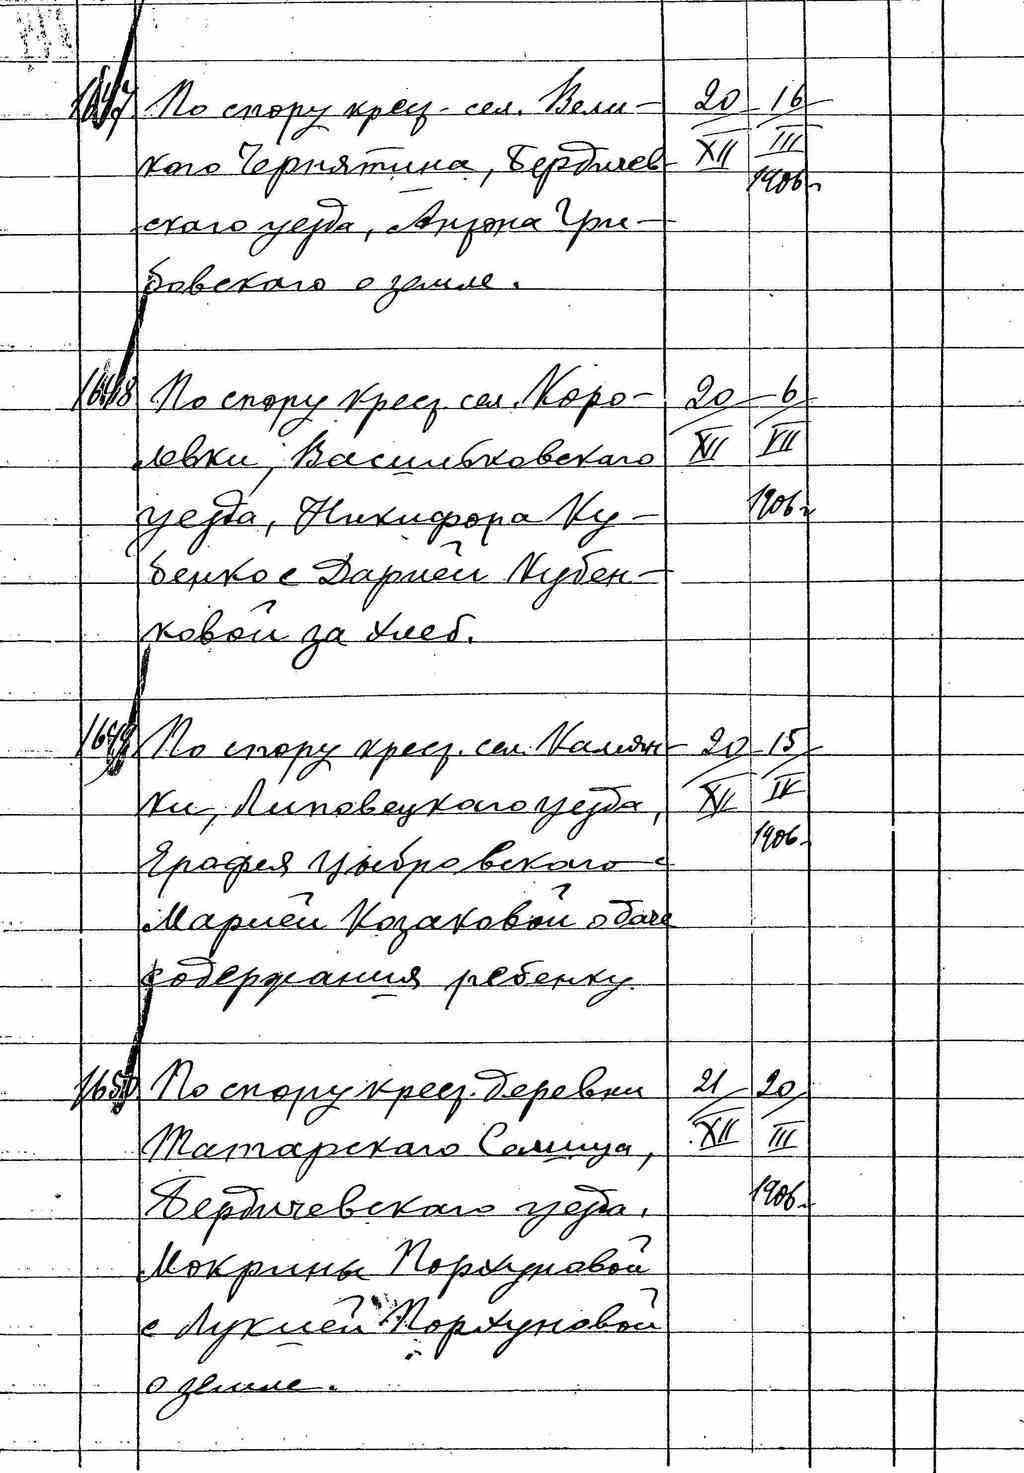 1647 По спору крест. сел. Вели- 20 16
кого Чернятина, Бердичев- XII III
скаго уезда, Антона Гри- 1906 г.
бовскаго о земле.
1648 По спору крест. сел. Коро- 20 6
левки, Васильковскаго XII VII
уезда, Никифора Ку- 1906 г.
бенко с Дарией Кубен-
ковой за хлеб.
1649 По спору крест. сел. Камян- 20 15
ки, Липовецкаго уезда, XII IV
Ерофея Цыбровскаго с 1906
Марией Козаковой о даче
содержания ребенку.
1650 По спору крест. деревни 21 20
Татарскаго Селища, XII III
Бердичевскаго уезда, 1906
Мокрины Порхуновой
с Лукией Порхуновой
о земле.